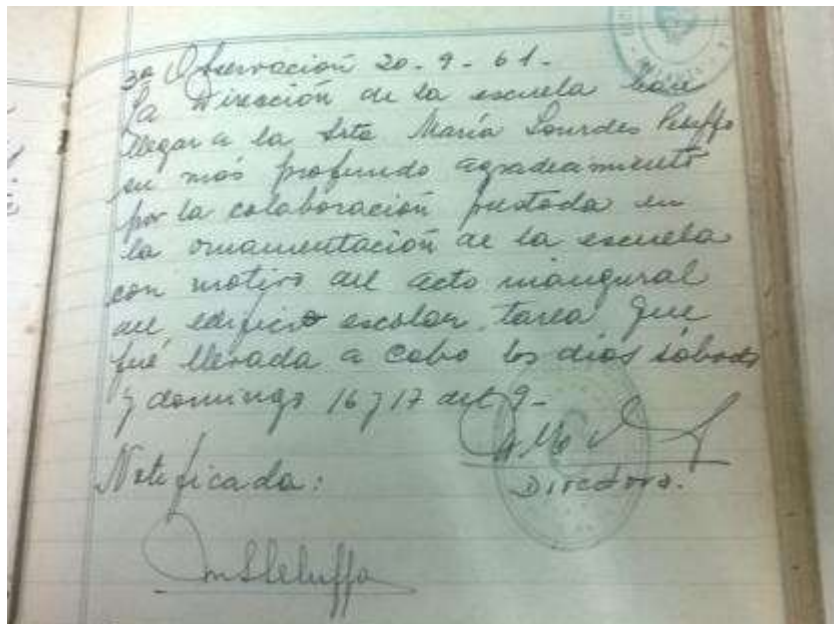 3ª Observación 20-9-61-
La Dirección de la escuela hace
llegar a la Srta María Lourdes Peluffo
su más profundo agradecimiento
por la colaboración prestada en
la ornamentación de la escuela
con motivo del acto inaugural
del edificio escolar, tarea que
fué llevada a cabo los días sábado
y domingo 16 y 17 del 9-
Notificada:
Directora.